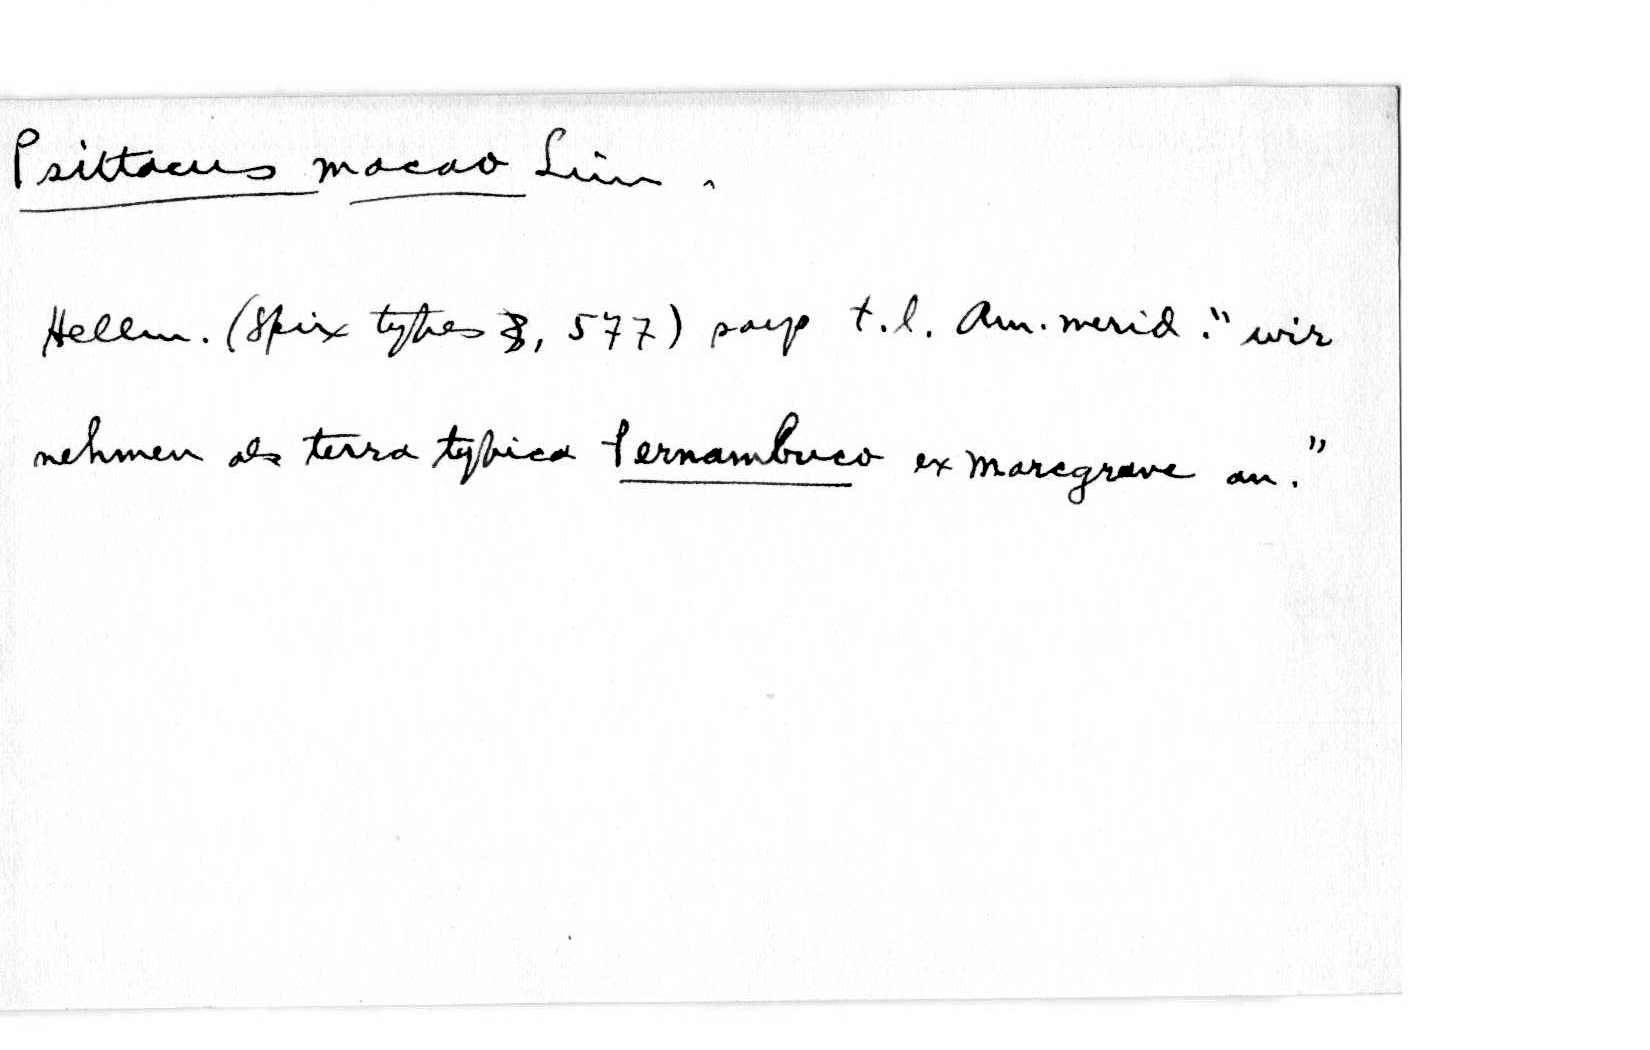 Psittacus macao Linn.
Hellm. (Spix types 3, 577) says t.l. Am. merid: "wir
nehmen als terra typica Pernambuco ex Marcgrave an."